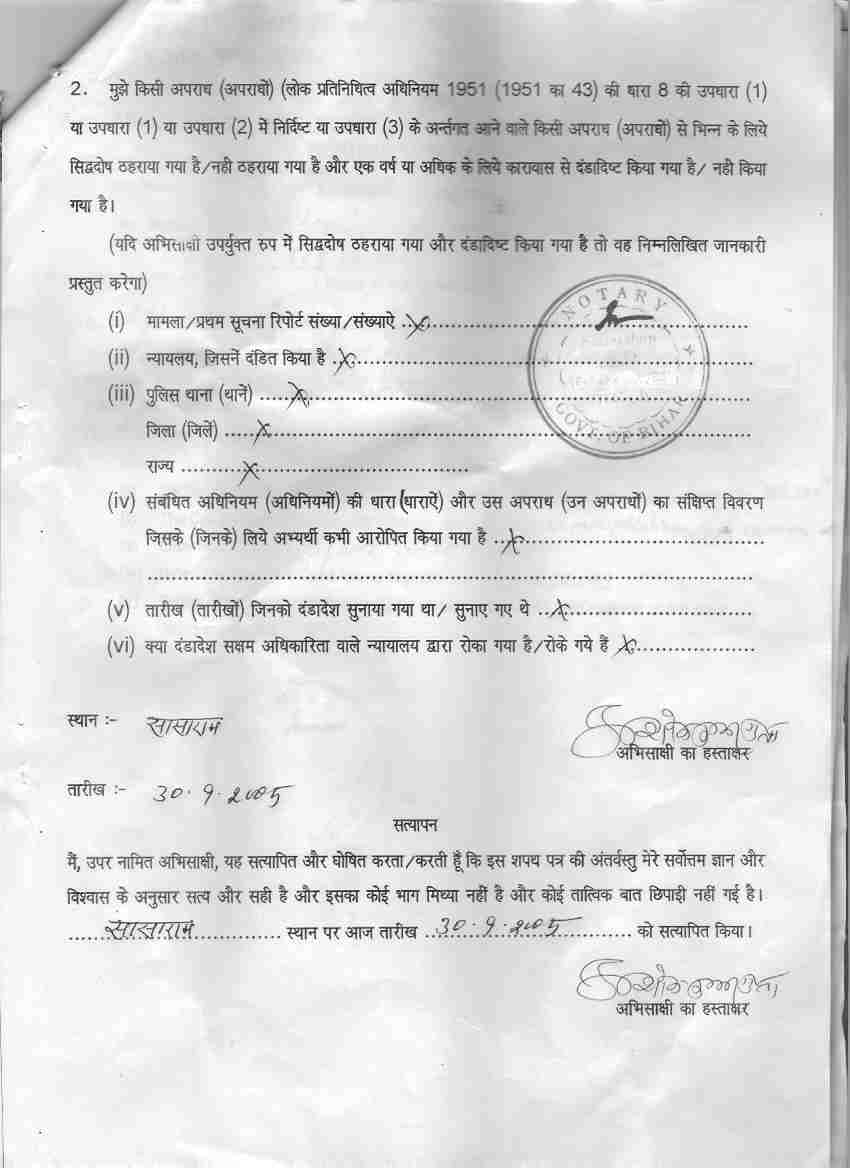 2. मुझे किसी अपराध (अपराधों) (लोक प्रतिनिधित्व अधिनियम 1951 (1951 का 43) की धारा 8 की उपधारा (1)
या उपधारा (1) या उपधारा (2) में निर्दिष्ट या उपधारा (3) के अर्न्तगत आने वाले किसी अपराध (अपराधों) से भिन्न के लिये
सिद्वदोष ठहराया गया है/नही ठहराया गया है और एक वर्ष या अधिक के लिये कारावास से दंडादिष्ट किया गया है/ नही किया
गया है।
(यदि अभिसाक्षी उपर्युक्त रुप में सिद्वदोष ठहराया गया और दंडादिष्ट किया गया है तो वह निम्नलिखित जानकारी
प्रस्तुत करेगा)
NOTARY
(i) मामला/प्रथम सूचना रिपोर्ट संख्या/संख्याऐ ..x..............................
(ii) न्यायलय, जिसनें दंडित किया है ..x..............................
(iii) पुलिस थाना (थानें) .....x..............................
GOVT. OF BIHAR
जिला (जिलें) .....x..............................
राज्य ..........x..............................
(iv) संबंधित अधिनियम (अधिनियमों) की धारा (धाराऐं) और उस अपराध (उन अपराधों) का संक्षिप्त विवरण
जिसके (जिनके) लिये अभ्यर्थी कभी आरोपित किया गया है ..x..............................
(v) तारीख (तारीखों) जिनको दंडादेश सुनाया गया था/ सुनाए गए थे ..x..............................
(vi) क्या दंडादेश सक्षम अधिकारिता वाले न्यायालय द्वारा रोका गया है/रोके गये हैं x....................
स्थान :- सासाराम
अभिसाक्षी का हस्ताक्षर
तारीख :- 30.9.2005
सत्यापन
मैं, उपर नामित अभिसाक्षी, यह सत्यापित और घोषित करता/करती हूँ कि इस शपथ पत्र की अंतर्वस्तु मेरे सर्वोत्तम ज्ञान और
विश्वास के अनुसार सत्य और सही है और इसका कोई भाग मिथ्या नहीं है और कोई तात्विक बात छिपाई नहीं गई है।
......सासाराम.............. स्थान पर आज तारीख ..30.9.2005.......... को सत्यापित किया।
अभिसाक्षी का हस्ताक्षर